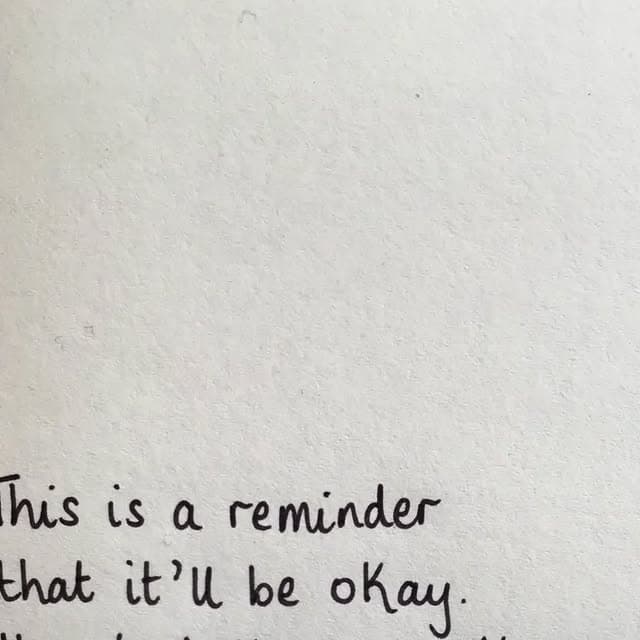 This is a reminder
that it'll be okay.